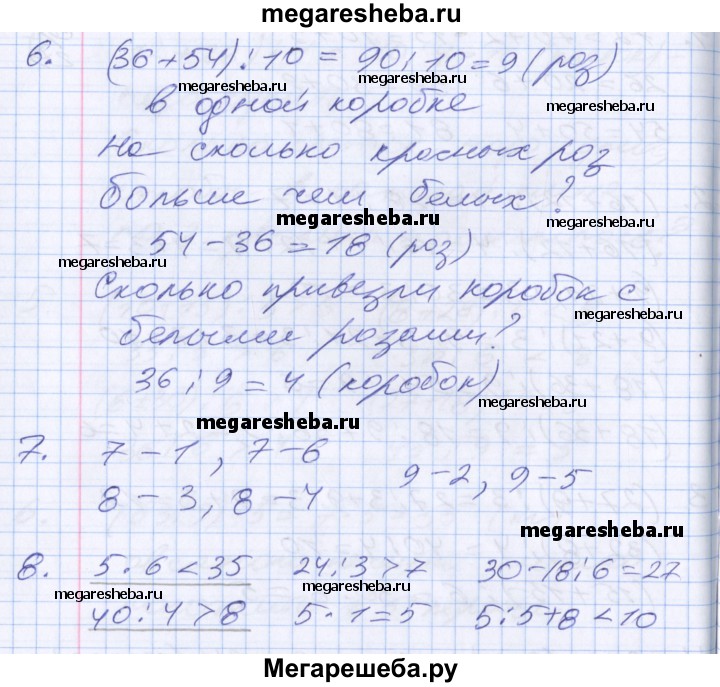 megaresheba.ru
6. (36+54):10=90:10=9(роз)
megaresheba.ru megaresheba.ru
в одной коробке megaresheba.ru
На сколько красных роз
megaresheba.ru
больше чем белых?
megaresheba.ru megaresheba.ru
54-36=18 (роз)
megaresheba.ru
Сколько привезли коробок с
белыми розами?
megaresheba.ru megaresheba.ru
36:9=4 (коробок)
megaresheba.ru
megaresheba.ru
7. 7-1, 7-6
9-2, 9-5
8-3, 8-4
megaresheba.ru
8. 5·6<35 24:3>7 30-18:6=27
megaresheba.ru megaresheba.ru
40:4>8 5·1=5 5:5+8<10
megaresheba.ru
Мегарешеба.ру